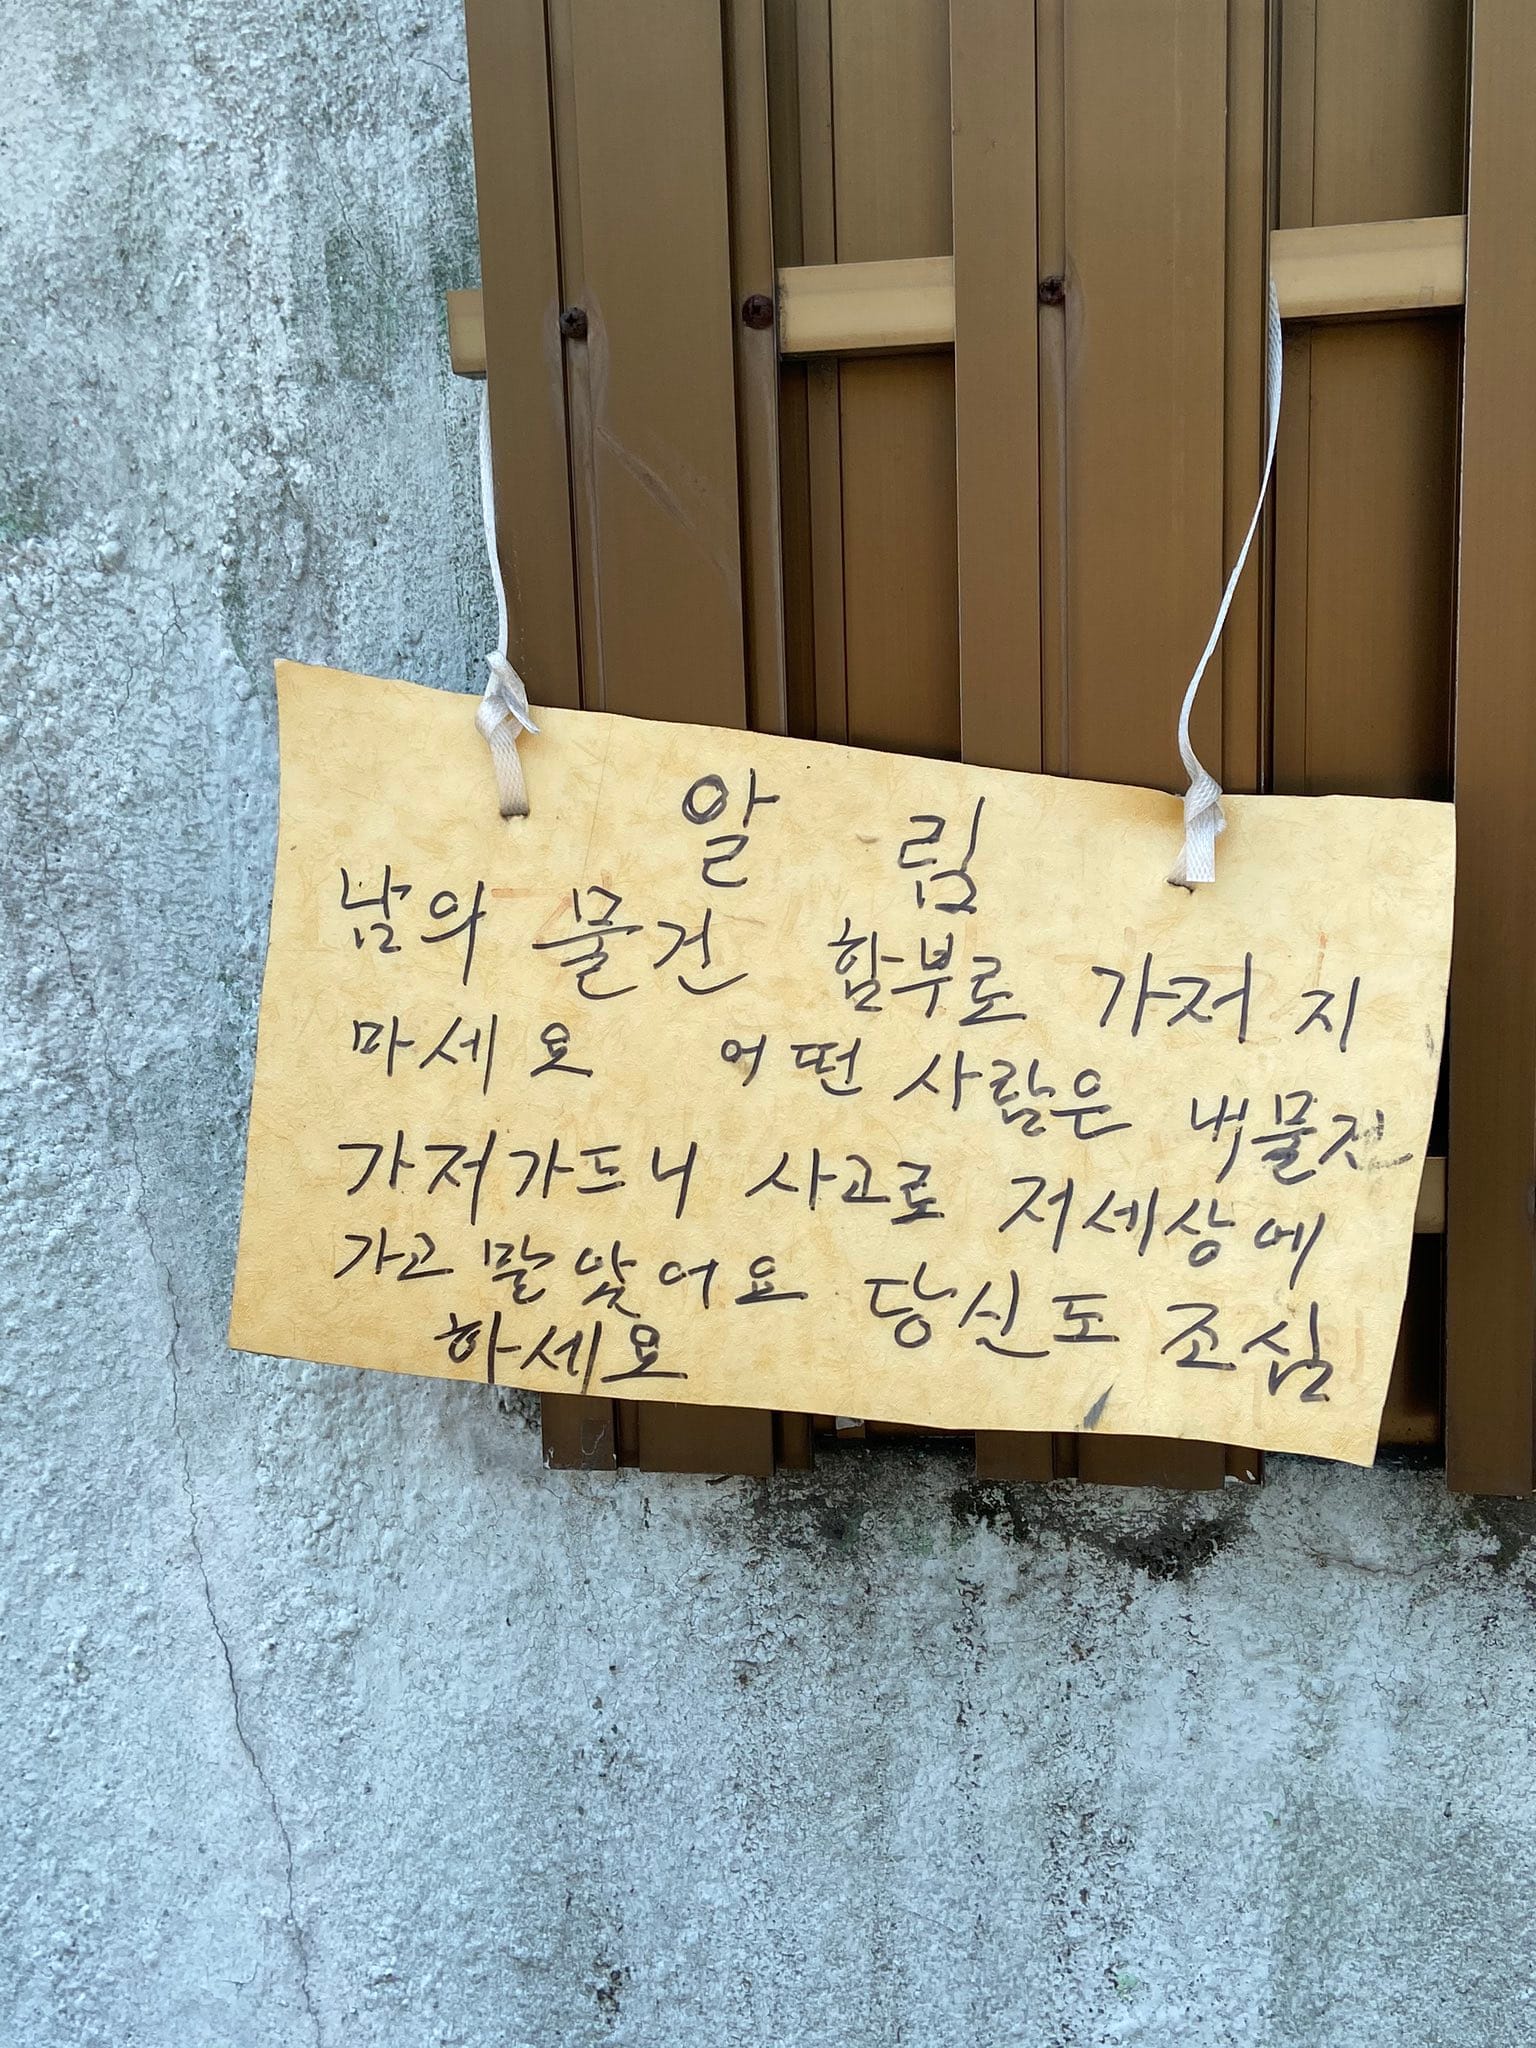 알 림
남의 물건 함부로 가저 지
마세요 어떤 사람은 내물건
가저가드니 사고로 저세상에
가고 말앚어요 당신도 조심
하세요